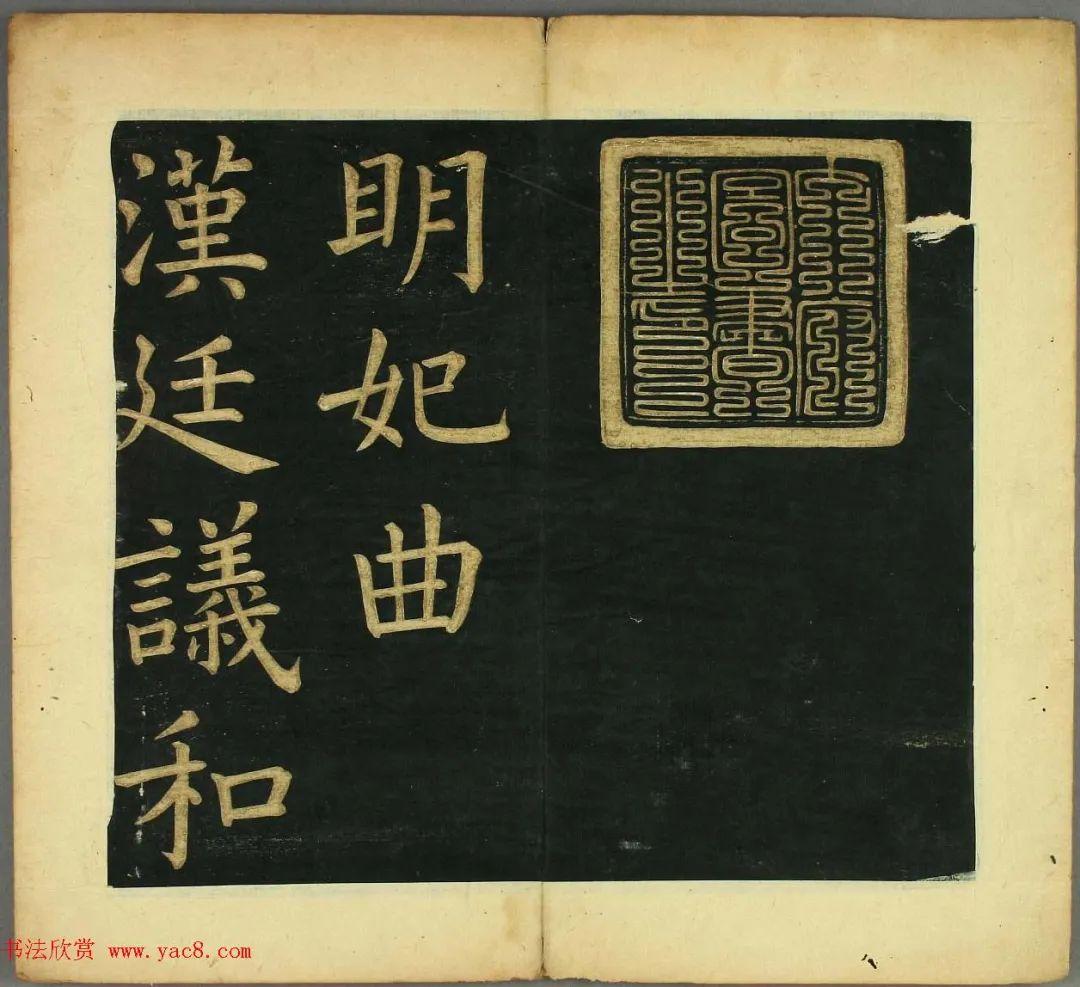 明妃曲
漢廷議和
书法欣赏 www.yac8.com